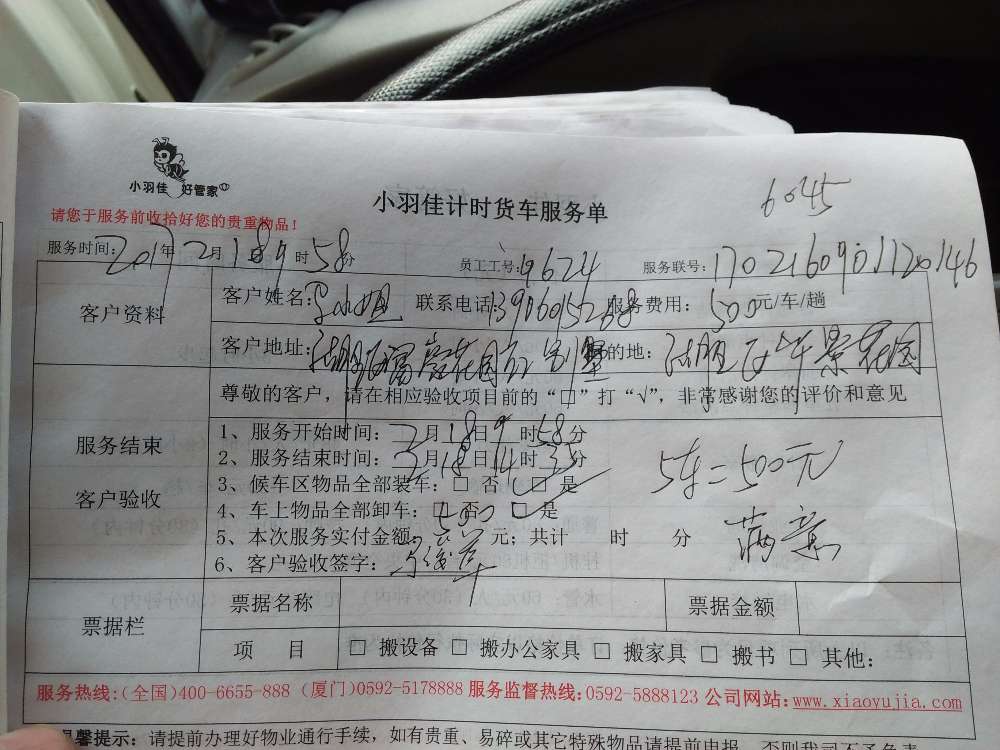 小羽佳 好管家
小羽佳计时货车服务单
6045
请您于服务前收拾好您的贵重物品！
服务时间：2017年2月18 9时58分 员工工号：19624 服务联号：1702160901120146
客户资料
客户姓名： 小姐 联系电话：13906095288 服务费用：500元/车/趟
客户地址：湖里区 花园 目的地：湖里区 花园
尊敬的客户，请在相应验收项目前的“口”打“√”，非常感谢您的评价和意见
服务结束
客户验收
1、服务开始时间：2月18日9时58分
2、服务结束时间：2月18日14时35分
3、候车区物品全部装车：□ 否 □ 是
4、车上物品全部卸车：□ 否 □ 是
5、本次服务实付金额：500元；共计 时 分
6、客户验收签字：
5车=500元
满意
票据栏
票据名称 票据金额
项 目 □ 搬设备 □ 搬办公家具 □ 搬家具 □ 搬书 □ 其他：
服务热线：(全国)400-6655-888 (厦门)0592-5178888 服务监督热线：0592-5888123 公司网站：www.xiaoyujia.com
温馨提示：请提前办理好物业通行手续，如有贵重、易碎或其它特殊物品请提前申报，否则我司不予负责